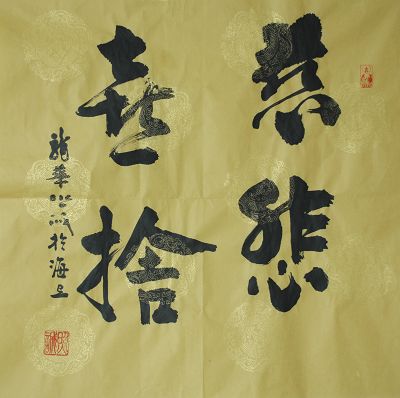 慈悲
喜捨
龍華照誠於海上